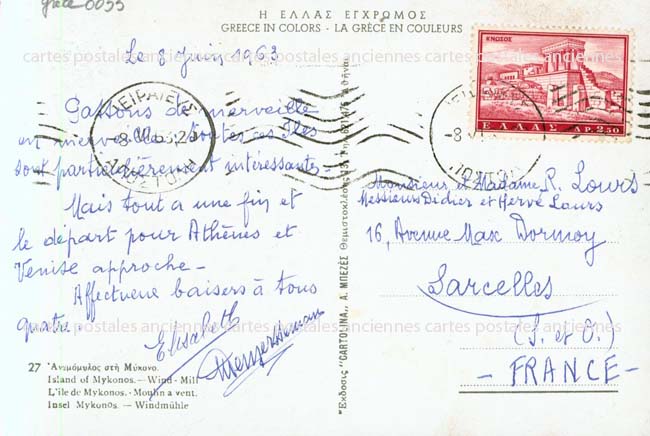 grèce-0055
Η ΕΛΛΑΣ ΕΓΧΡΩΜΟΣ
GREECE IN COLORS - LA GRÈCE EN COULEURS
Le 8 Juin 1963
Passons de merveille
en merveille, toutes ces îles
sont particulièrement intéressantes -
Mais tout a une fin et
le départ pour Athènes et
Venise approche -
Affectueux baisers à tous
quatre.
Elisabeth
27 Ἀνεμόμυλος στὴ Μύκονο.
Island of Mykonos. — Wind - Mill
L'île de Mykonos. - Moulin a vent.
Insel Mykonos. — Windmühle
Ἔκδοσις "CARTOLINA,, Α. ΜΠΕΖΕΣ Θεμιστοκλέους
ΚΝΩΣΟΣ
ΕΛΛΑΣ ΔΡ. 2,50
ΠΕΙΡΑΙΕΥΣ
-8
Monsieur et Madame R. Lours
Messieurs Didier et Hervé Lours
16, Avenue Max Dormoy
Sarcelles
(S. et O.)
- FRANCE -
cartes postales anciennes cartes postales anciennes cartes postales anciennes